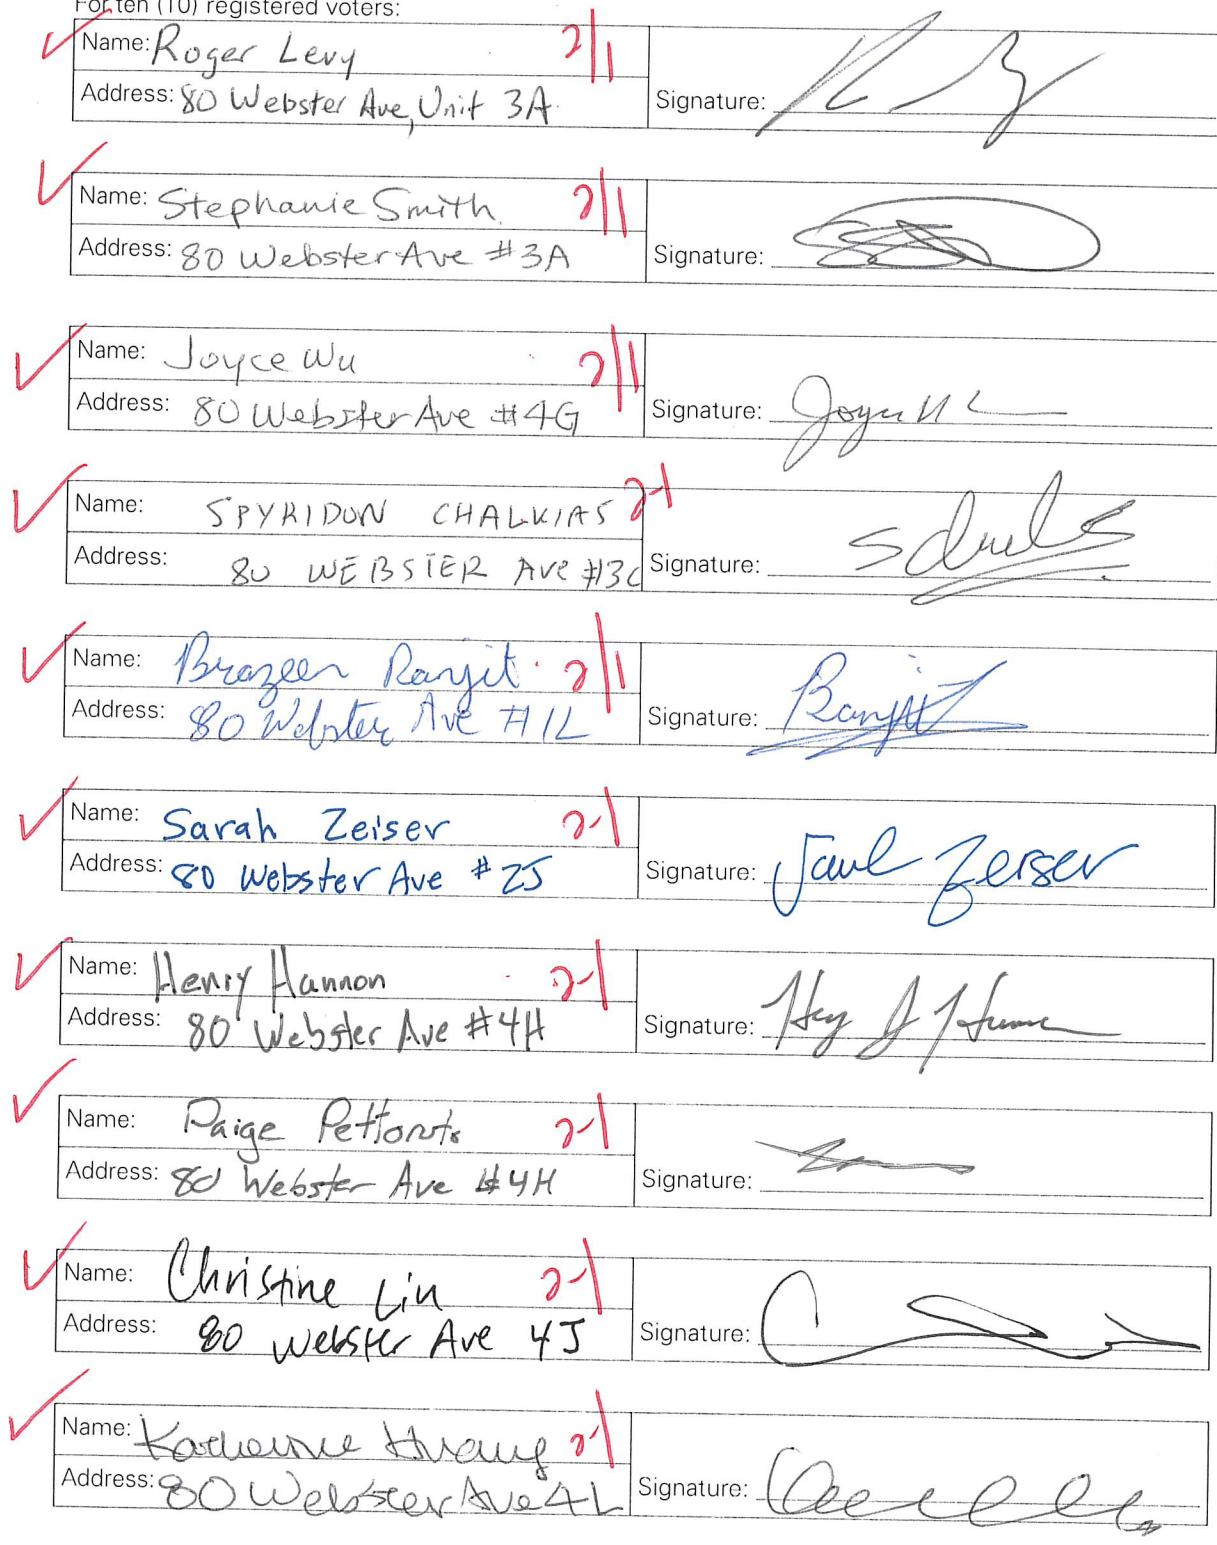 For ten (10) registered voters:
Name: Roger Levy 2/1
Address: 80 Webster Ave, Unit 3A
Signature:
Name: Stephanie Smith 2/1
Address: 80 Webster Ave #3A
Signature:
Name: Joyce Wu 2/1
Address: 80 Webster Ave #4G
Signature:
Name: SPYRIDON CHALKIAS 2-1
Address: 80 WEBSTER AVE #3C
Signature:
Name: Brazeen Ranjit 2/1
Address: 80 Webster Ave #1L
Signature: Ranjit
Name: Sarah Zeiser 2-1
Address: 80 Webster Ave #2J
Signature: Sarah Zeiser
Name: Henry Hannon 2-1
Address: 80 Webster Ave #4H
Signature:
Name: Paige 2-1
Address: 80 Webster Ave #4H
Signature:
Name: Christine Lin 2-1
Address: 80 Webster Ave 4J
Signature:
Name: Katherine Huang 2-1
Address: 80 Webster Ave 4L
Signature: